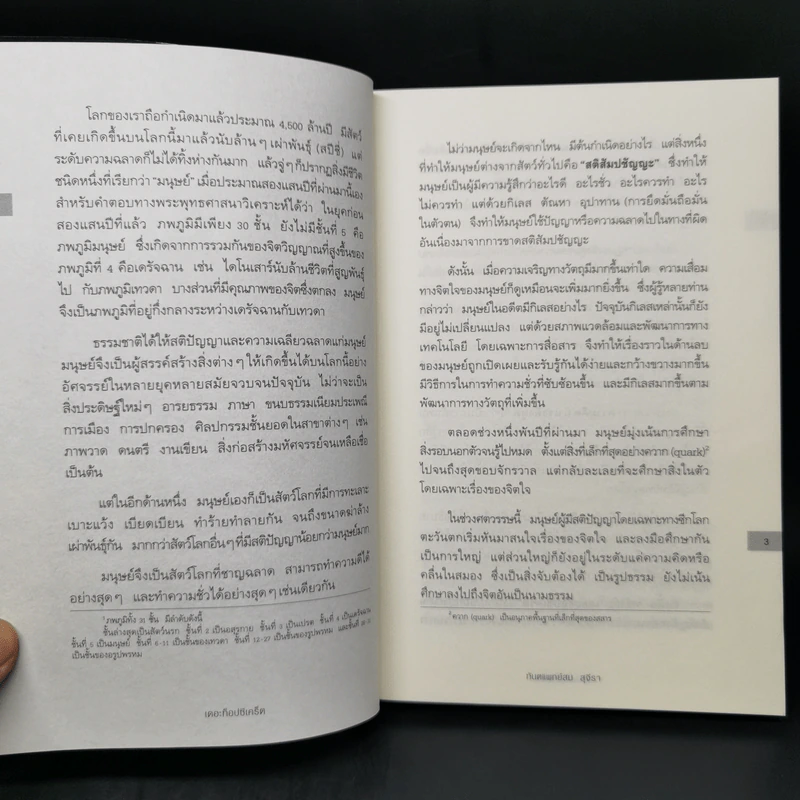 โลกของเราถือกำเนิดมาแล้วประมาณ 4,500 ล้านปี มีสัตว์
ที่เคยเกิดขึ้นบนโลกนี้มาแล้วนับล้านๆ เผ่าพันธุ์ (สปีชี่) แต่
ระดับความฉลาดก็ไม่ได้ทิ้งห่างกันมาก แล้วจู่ๆ ก็ปรากฏสิ่งมีชีวิต
ชนิดหนึ่งที่เรียกว่า "มนุษย์" เมื่อประมาณสองแสนปีที่ผ่านมานี้เอง
สำหรับคำตอบทางพระพุทธศาสนาวิเคราะห์ได้ว่า ในยุคก่อน
สองแสนปีที่แล้ว ภพภูมิมีเพียง 30 ชั้น ยังไม่มีชั้นที่ 5 คือ
ภพภูมิมนุษย์ ซึ่งเกิดจากการรวมกันของจิตวิญญาณที่สูงขึ้นของ
ภพภูมิที่ 4 คือเดรัจฉาน เช่น ไดโนเสาร์นับล้านชีวิตที่สูญพันธุ์
ไป กับภพภูมิเทวดา บางส่วนที่มีคุณภาพของจิตซึ่งตกลง มนุษย์
จึงเป็นภพภูมิที่อยู่กึ่งกลางระหว่างเดรัจฉานกับเทวดา
ธรรมชาติได้ให้สติปัญญาและความเฉลียวฉลาดแก่มนุษย์
มนุษย์จึงเป็นผู้สรรค์สร้างสิ่งต่างๆ ให้เกิดขึ้นได้บนโลกนี้อย่าง
อัศจรรย์ในหลายยุคหลายสมัยจวบจนปัจจุบัน ไม่ว่าจะเป็น
สิ่งประดิษฐ์ใหม่ๆ อารยธรรม ภาษา ขนบธรรมเนียมประเพณี
การเมือง การปกครอง ศิลปกรรมชั้นยอดในสาขาต่างๆ เช่น
ภาพวาด ดนตรี งานเขียน สิ่งก่อสร้างมหัศจรรย์จนเหลือเชื่อ
เป็นต้น
แต่ในอีกด้านหนึ่ง มนุษย์เองก็เป็นสัตว์โลกที่มีการทะเลาะ
เบาะแว้ง เบียดเบียน ทำร้ายทำลายกัน จนถึงขนาดฆ่าล้าง
เผ่าพันธุ์กัน มากกว่าสัตว์โลกอื่นๆ ที่มีสติปัญญาน้อยกว่ามนุษย์มาก
มนุษย์จึงเป็นสัตว์โลกที่ชาญฉลาด สามารถทำความดีได้
อย่างสุดๆ และทำความชั่วได้อย่างสุดๆ เช่นเดียวกัน
ภพภูมิทั้ง 31 ชั้น มีลำดับดังนี้
ชั้นล่างสุดเป็นสัตว์นรก ชั้นที่ 2 เป็นอสุรกาย ชั้นที่ 3 เป็นเปรต ชั้นที่ 4 เป็นเดรัจฉาน
ชั้นที่ 5 เป็นมนุษย์ ชั้นที่ 6-11 เป็นชั้นของเทวดา ชั้นที่ 12-27 เป็นชั้นของรูปพรหม และชั้นที่
เป็นชั้นของอรูปพรหม
เดอะท็อปซีเคร็ต
ไม่ว่ามนุษย์จะเกิดจากไหน มีต้นกำเนิดอย่างไร แต่สิ่งหนึ่ง
ที่ทำให้มนุษย์ต่างจากสัตว์ทั่วไปคือ "สติสัมปชัญญะ" ซึ่งทำให้
มนุษย์เป็นผู้มีความรู้สึกว่าอะไรดี อะไรชั่ว อะไรควรทำ อะไร
ไม่ควรทำ แต่ด้วยกิเลส ตัณหา อุปาทาน (การยึดมั่นถือมั่น
ในตัวตน) จึงทำให้มนุษย์ใช้ปัญญาหรือความฉลาดไปในทางที่ผิด
อันเนื่องมาจากการขาดสติสัมปชัญญะ
ดังนั้น เมื่อความเจริญทางวัตถุมีมากขึ้นเท่าใด ความเสื่อม
ทางจิตใจของมนุษย์ก็ดูเหมือนจะเพิ่มมากยิ่งขึ้น ซึ่งผู้รู้หลายท่าน
กล่าวว่า มนุษย์ในอดีตมีกิเลสอย่างไร ปัจจุบันกิเลสเหล่านั้นก็ยัง
มีอยู่ไม่เปลี่ยนแปลง แต่ด้วยสภาพแวดล้อมและพัฒนาการทาง
เทคโนโลยี โดยเฉพาะการสื่อสาร จึงทำให้เรื่องราวในด้านลบ
ของมนุษย์ถูกเปิดเผยและรับรู้กันได้ง่ายและกว้างขวางมากขึ้น
มีวิธีการในการทำความชั่วที่ซับซ้อนขึ้น และมีกิเลสมากขึ้นตาม
พัฒนาการทางวัตถุที่เพิ่มขึ้น
ตลอดช่วงหนึ่งพันปีที่ผ่านมา มนุษย์มุ่งเน้นการศึกษา
สิ่งรอบนอกตัวจนรู้ไปหมด ตั้งแต่สิ่งที่เล็กที่สุดอย่างควาก (quark)²
ไปจนถึงสุดขอบจักรวาล แต่กลับละเลยที่จะศึกษาสิ่งในตัว
โดยเฉพาะเรื่องของจิตใจ
ในช่วงศตวรรษนี้ มนุษย์ผู้มีสติปัญญาโดยเฉพาะทางซีกโลก
ตะวันตกเริ่มหันมาสนใจเรื่องของจิตใจ และลงมือศึกษากัน
เป็นการใหญ่ แต่ส่วนใหญ่ก็ยังอยู่ในระดับแค่ความคิดหรือ
คลื่นในสมอง ซึ่งเป็นสิ่งจับต้องได้ เป็นรูปธรรม ยังไม่เน้น
ศึกษาลงไปถึงจิตอันเป็นนามธรรม
²ควาก (quark) เป็นอนุภาคพื้นฐานที่เล็กที่สุดของสสาร
3
ทันตแพทย์สม สุจีรา